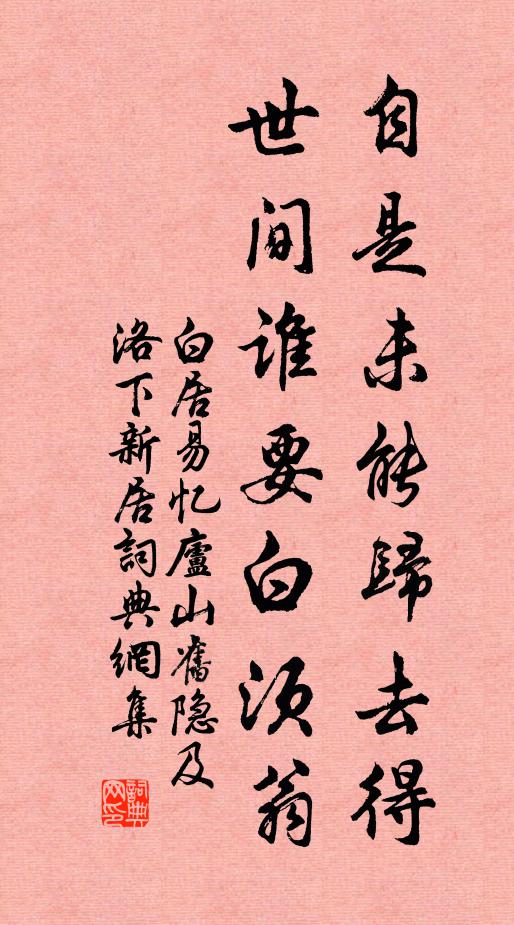 自是未能歸去得
世间谁要白须翁
白居易忆廬山舊隐及
洛下新居詞典網集
詞典網印